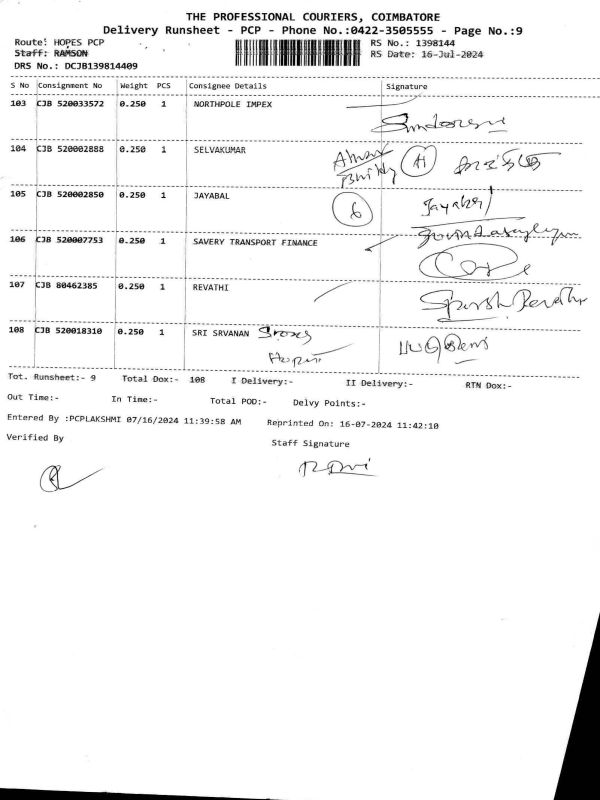 THE PROFESSIONAL COURIERS, COIMBATORE
Delivery Runsheet - PCP - Phone No.:0422-3505555 - Page No.:9
Route: HOPES PCP RS No.: 1398144
Staff: RAMSON RS Date: 16-Jul-2024
DRS No.: DCJB139814409
S No Consignment No Weight PCS Consignee Details Signature
103 CJB 520033572 0.250 1 NORTHPOLE IMPEX
104 CJB 520002888 0.250 1 SELVAKUMAR
105 CJB 520002850 0.250 1 JAYABAL 6 Jayabal
106 CJB 520007753 0.250 1 SAVERY TRANSPORT FINANCE
107 CJB 80462385 0.250 1 REVATHI Revathi
108 CJB 520018310 0.250 1 SRI SRVANAN Stores
Tot. Runsheet:- 9 Total Dox:- 108 I Delivery:- II Delivery:- RTN Dox:-
Out Time:- In Time:- Total POD:- Delvy Points:-
Entered By :PCPLAKSHMI 07/16/2024 11:39:58 AM Reprinted On: 16-07-2024 11:42:10
Verified By Staff Signature